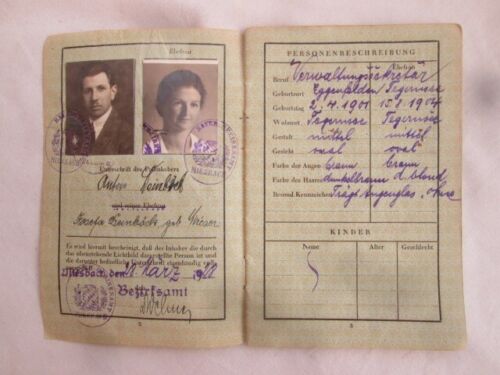 Ehefrau
Unterschrift des Paßinhabers
Anton
und seiner Ehefrau
Josefa geb.
Es wird hiermit bescheinigt, daß der Inhaber die durch
das obenstehende Lichtbild dargestellte Person ist und
die darunter befindliche Unterschrift eigenhändig
Miesbach, den März 19
Bezirksamt
2
PERSONENBESCHREIBUNG
Ehefrau
Beruf Verwaltungssekretär
Geburtsort Eggenfelden Tegernsee
Geburtstag 2.4.1901 1904
Wohnort Tegernsee Tegernsee
Gestalt mittel mittel
Gesicht oval oval
Farbe der Augen braun braun
Farbe des Haares dunkelbraun d. blond
Besond. Kennzeichen Trägt Augenglas, ohne
KINDER
Name Alter Geschlecht
3